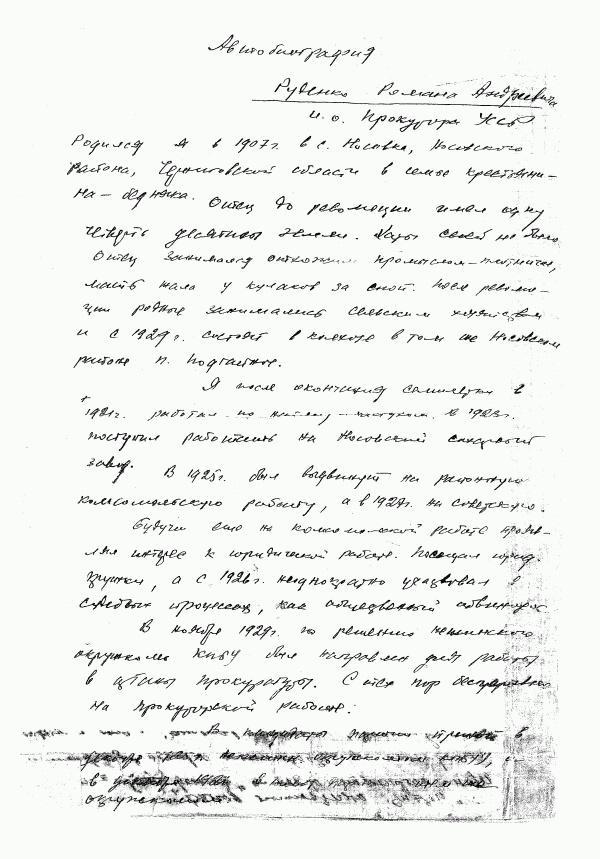 Автобиография
Руденко Романа Андреевича
и.о. Прокурора УССР
Родился я в 1907 г. в с. Носовка, Носовского
района, Черниговской области в семье крестьяни-
на-бедняка. Отец до революции имел одну
четверть десятины земли. Хаты своей не было
Отец занимался отхожим промыслом-плотничал,
мать жала у кулаков за сноп. После револю-
ции родные занимались сельским хозяйством
и с 1929 г. состоят в колхозе в том же Носовском
районе п. Подгайное.
Я после окончания семилетки в
1921 г. работал по найму-пастухом. В 1923 г.
поступил работать на Носовский сахарный
завод. В 1925 г. был выдвинут на районную
комсомольскую работу, а в 1927 г. на советскую.
Будучи еще на комсомольской работе прояв-
лял интерес к юридической работе. Посещал юрид.
кружки, а с 1926 г. неоднократно участвовал в
судебных процессах, как общественный обвинитель
В ноябре 1929 г. по решению Нежинского
окружкома КП/б/У был направлен для работы
в органы прокуратуры. С тех пор беспрерывно
на прокурорской работе.
В кандидаты партии принят в
декабре Нежинским окружкомом КП/б/У,
в
окружкома